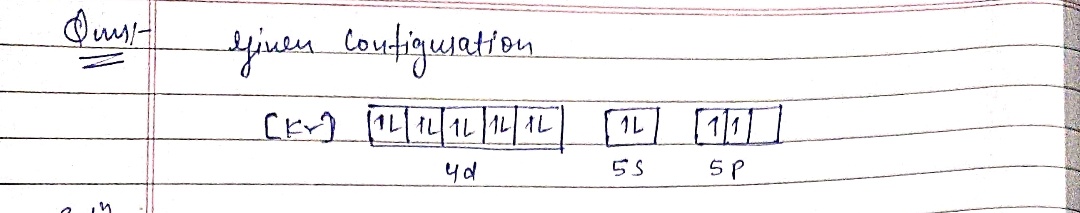 Ques:-
Given Configuration
[Kr] [1L|1L|1L|1L|1L] [1L] [1|1| ]
4d 5S 5P